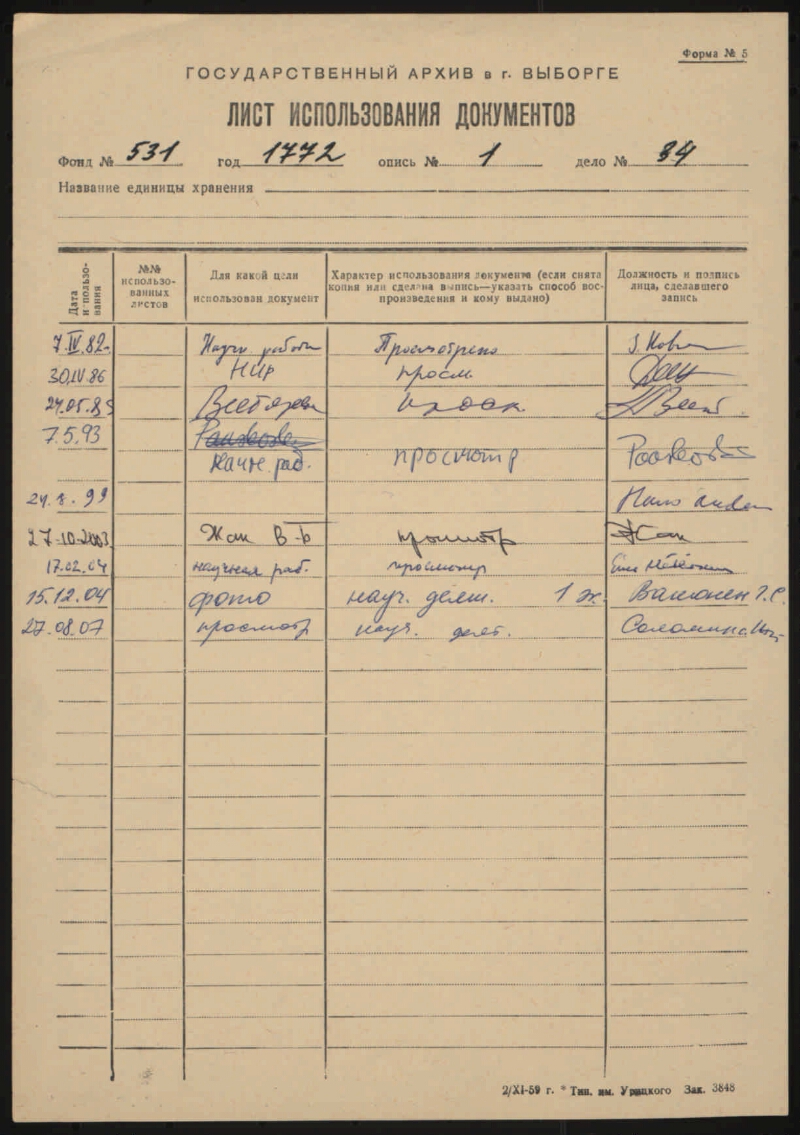 Форма № 5
ГОСУДАРСТВЕННЫЙ АРХИВ в г. ВЫБОРГЕ
ЛИСТ ИСПОЛЬЗОВАНИЯ ДОКУМЕНТОВ
Фонд № 531 год 1772 опись № 1 дело № 34
Название единицы хранения
Дата использования
№№ использованных листов
Для какой цели использован документ
Характер использования документа (если снята копия или сделана выпись—указать способ воспроизведения и кому выдано)
Должность и подпись лица, сделавшего запись
7.IV.82. Научн работа Просмотрено
30.IV.86 НИР просм.
24.05.89
7.5.93
научн. раб. просмотр
24.8.99
27.10.2003 Жак В-Б просмотр Жак
17.02.04 научная раб. просмотр
15.12.04 фото науч. деят. 1 эк.
27.08.07 просмотр науч. деят.
2/XI-59 г. * Тип. им. Урицкого Зак. 3848